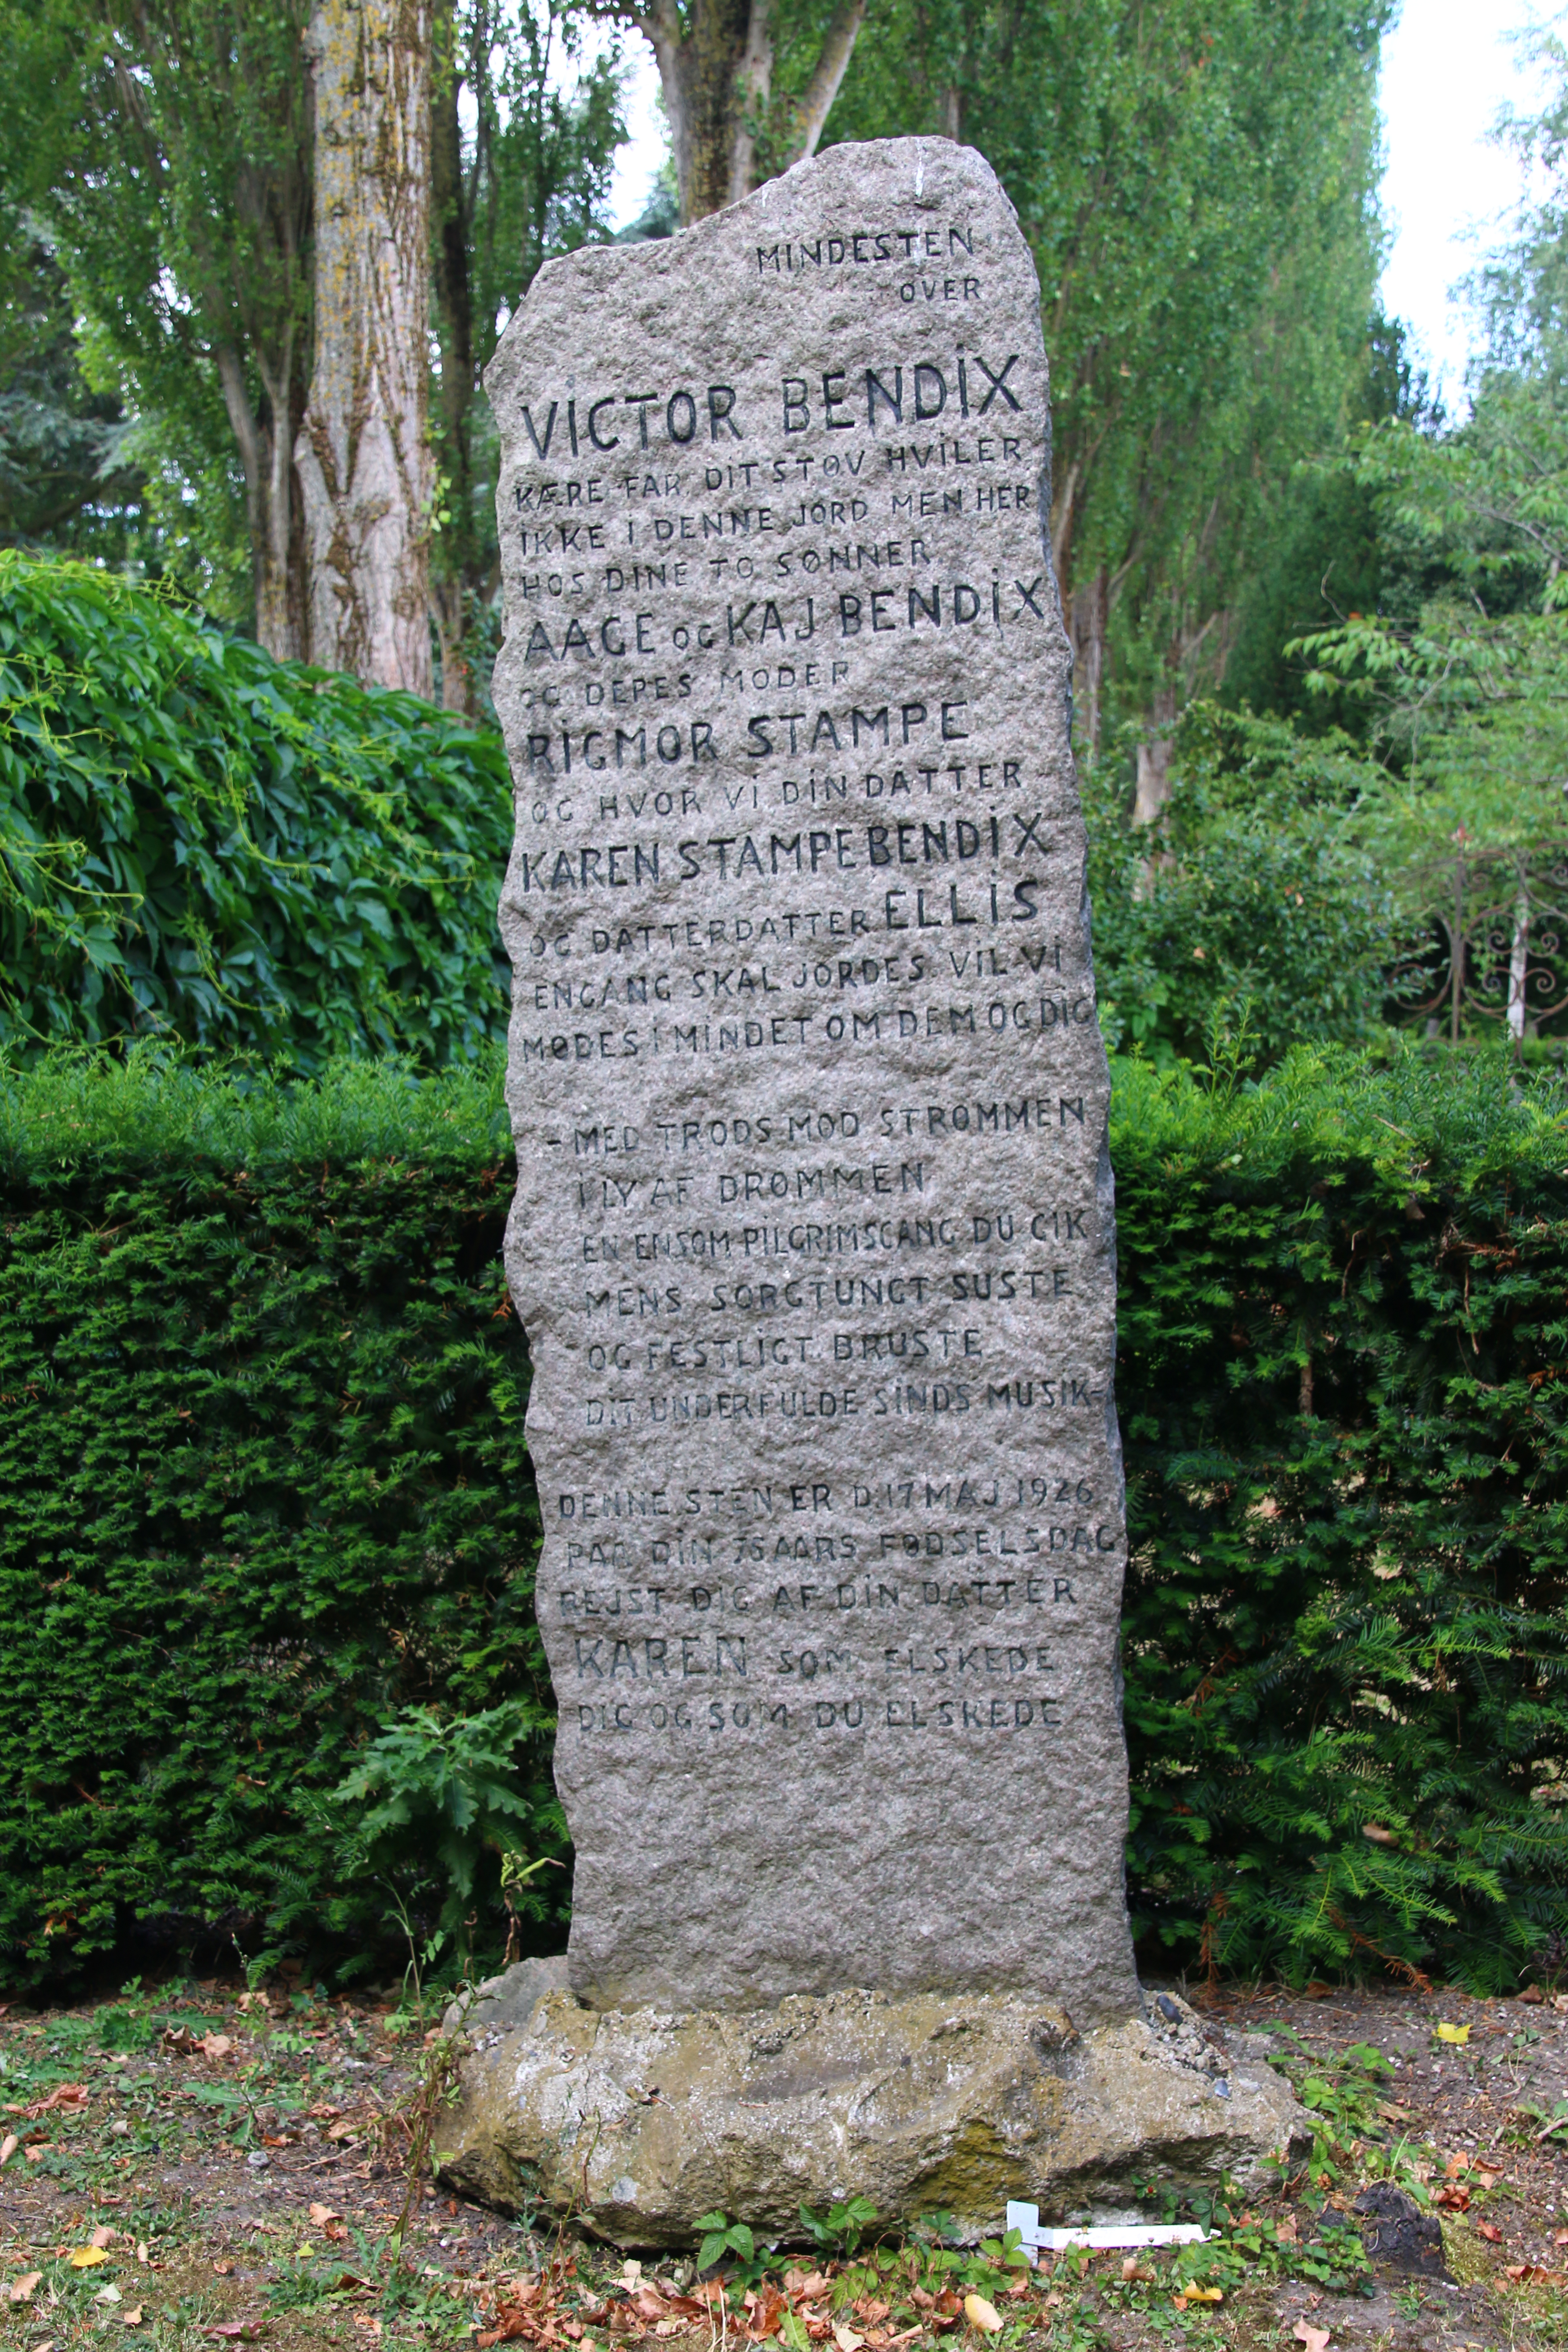 MINDESTEN
OVER
VICTOR BENDIX
KÆRE FAR, DIT STØV HVILER
IKKE I DENNE JORD MEN HER
HOS DINE TO SØNNER
AAGE OG KAJ BENDIX
OG DERES MODER
RIGMOR STAMPE
OG HVOR VI DIN DATTER
KAREN STAMPE BENDIX
OG DATTERDATTER ELLIS
ENGANG SKAL JORDES VIL VI
MØDES I MINDET OM DEM OG DIG
- MED TRODS MOD STRØMMEN
I LY AF DRØMMEN
EN ENSOM PILGRIMSGANG DU GIK
MENS SORGTUNGT SUSTE
OG FESTLIGT BRUSTE
DIT UNDERFULDE SINDS MUSIK -
DENNE STEN ER D. 17 MAJ 1926
PAA DIN 75 AARS FØDSELSDAG
REJST DIG AF DIN DATTER
KAREN SOM ELSKEDE
DIG OG SOM DU ELSKEDE